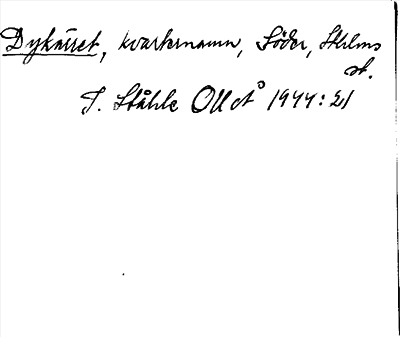 Dykärret, kvartersnamn, Söder, Sthlms
st.
T. Ståhle OUÅ 1944: 21